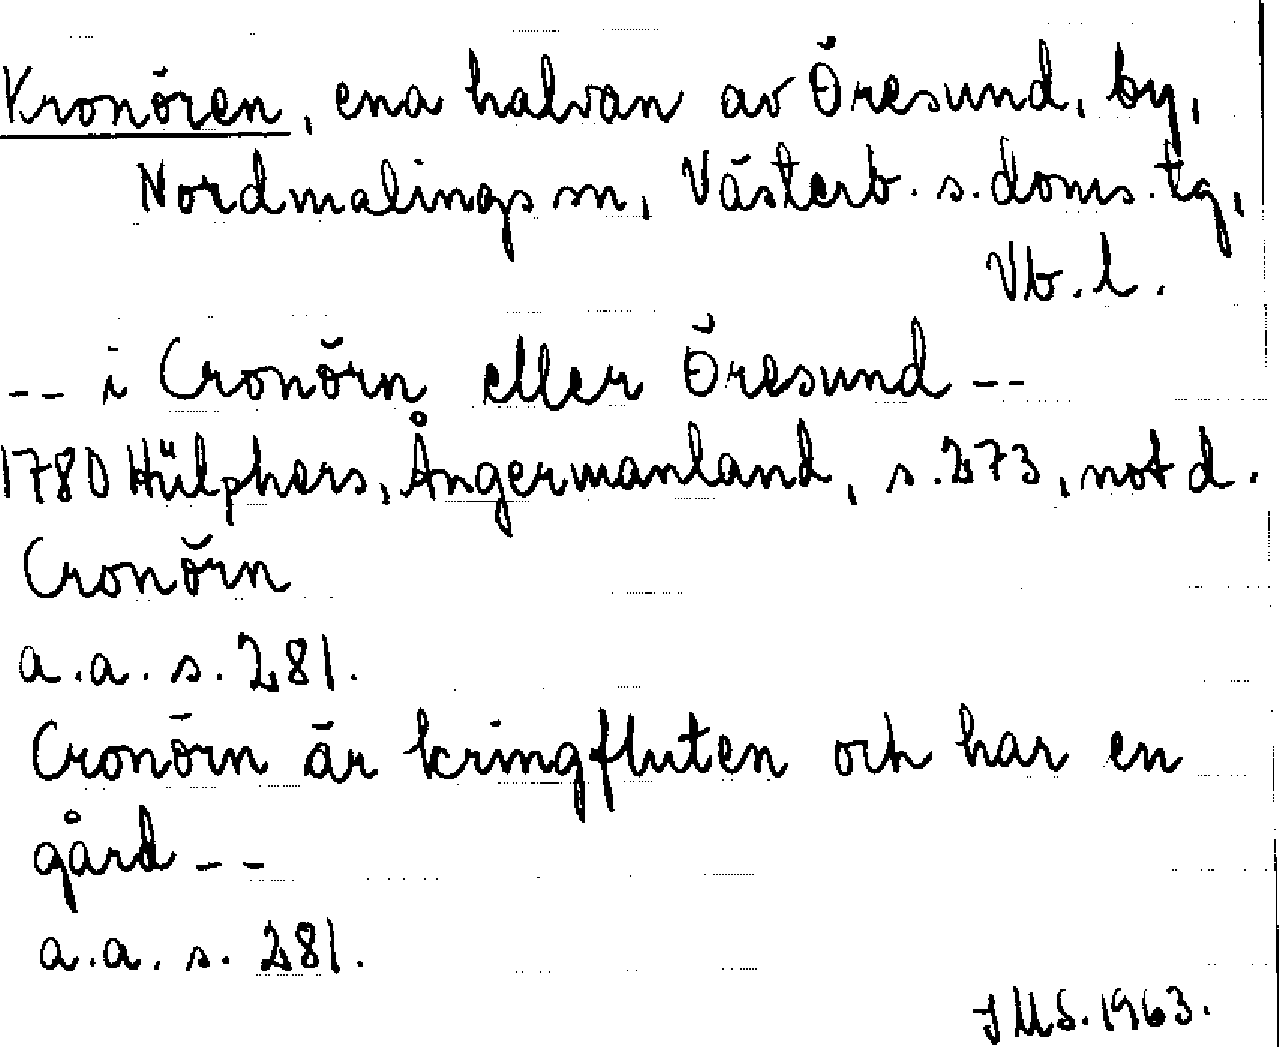 Kronören, ena halvan av Öresund, by,
Nordmalings sn, Västerb. s. doms. tg,
Vb. l.
-- i Cronörn eller Öresund --
1780 Hülphers, Ångermanland, s. 273, not d.
Cronörn
a.a. s. 281.
Cronörn är kringfluten och har en
gård --
a.a. s. 281.
JMS. 1963.